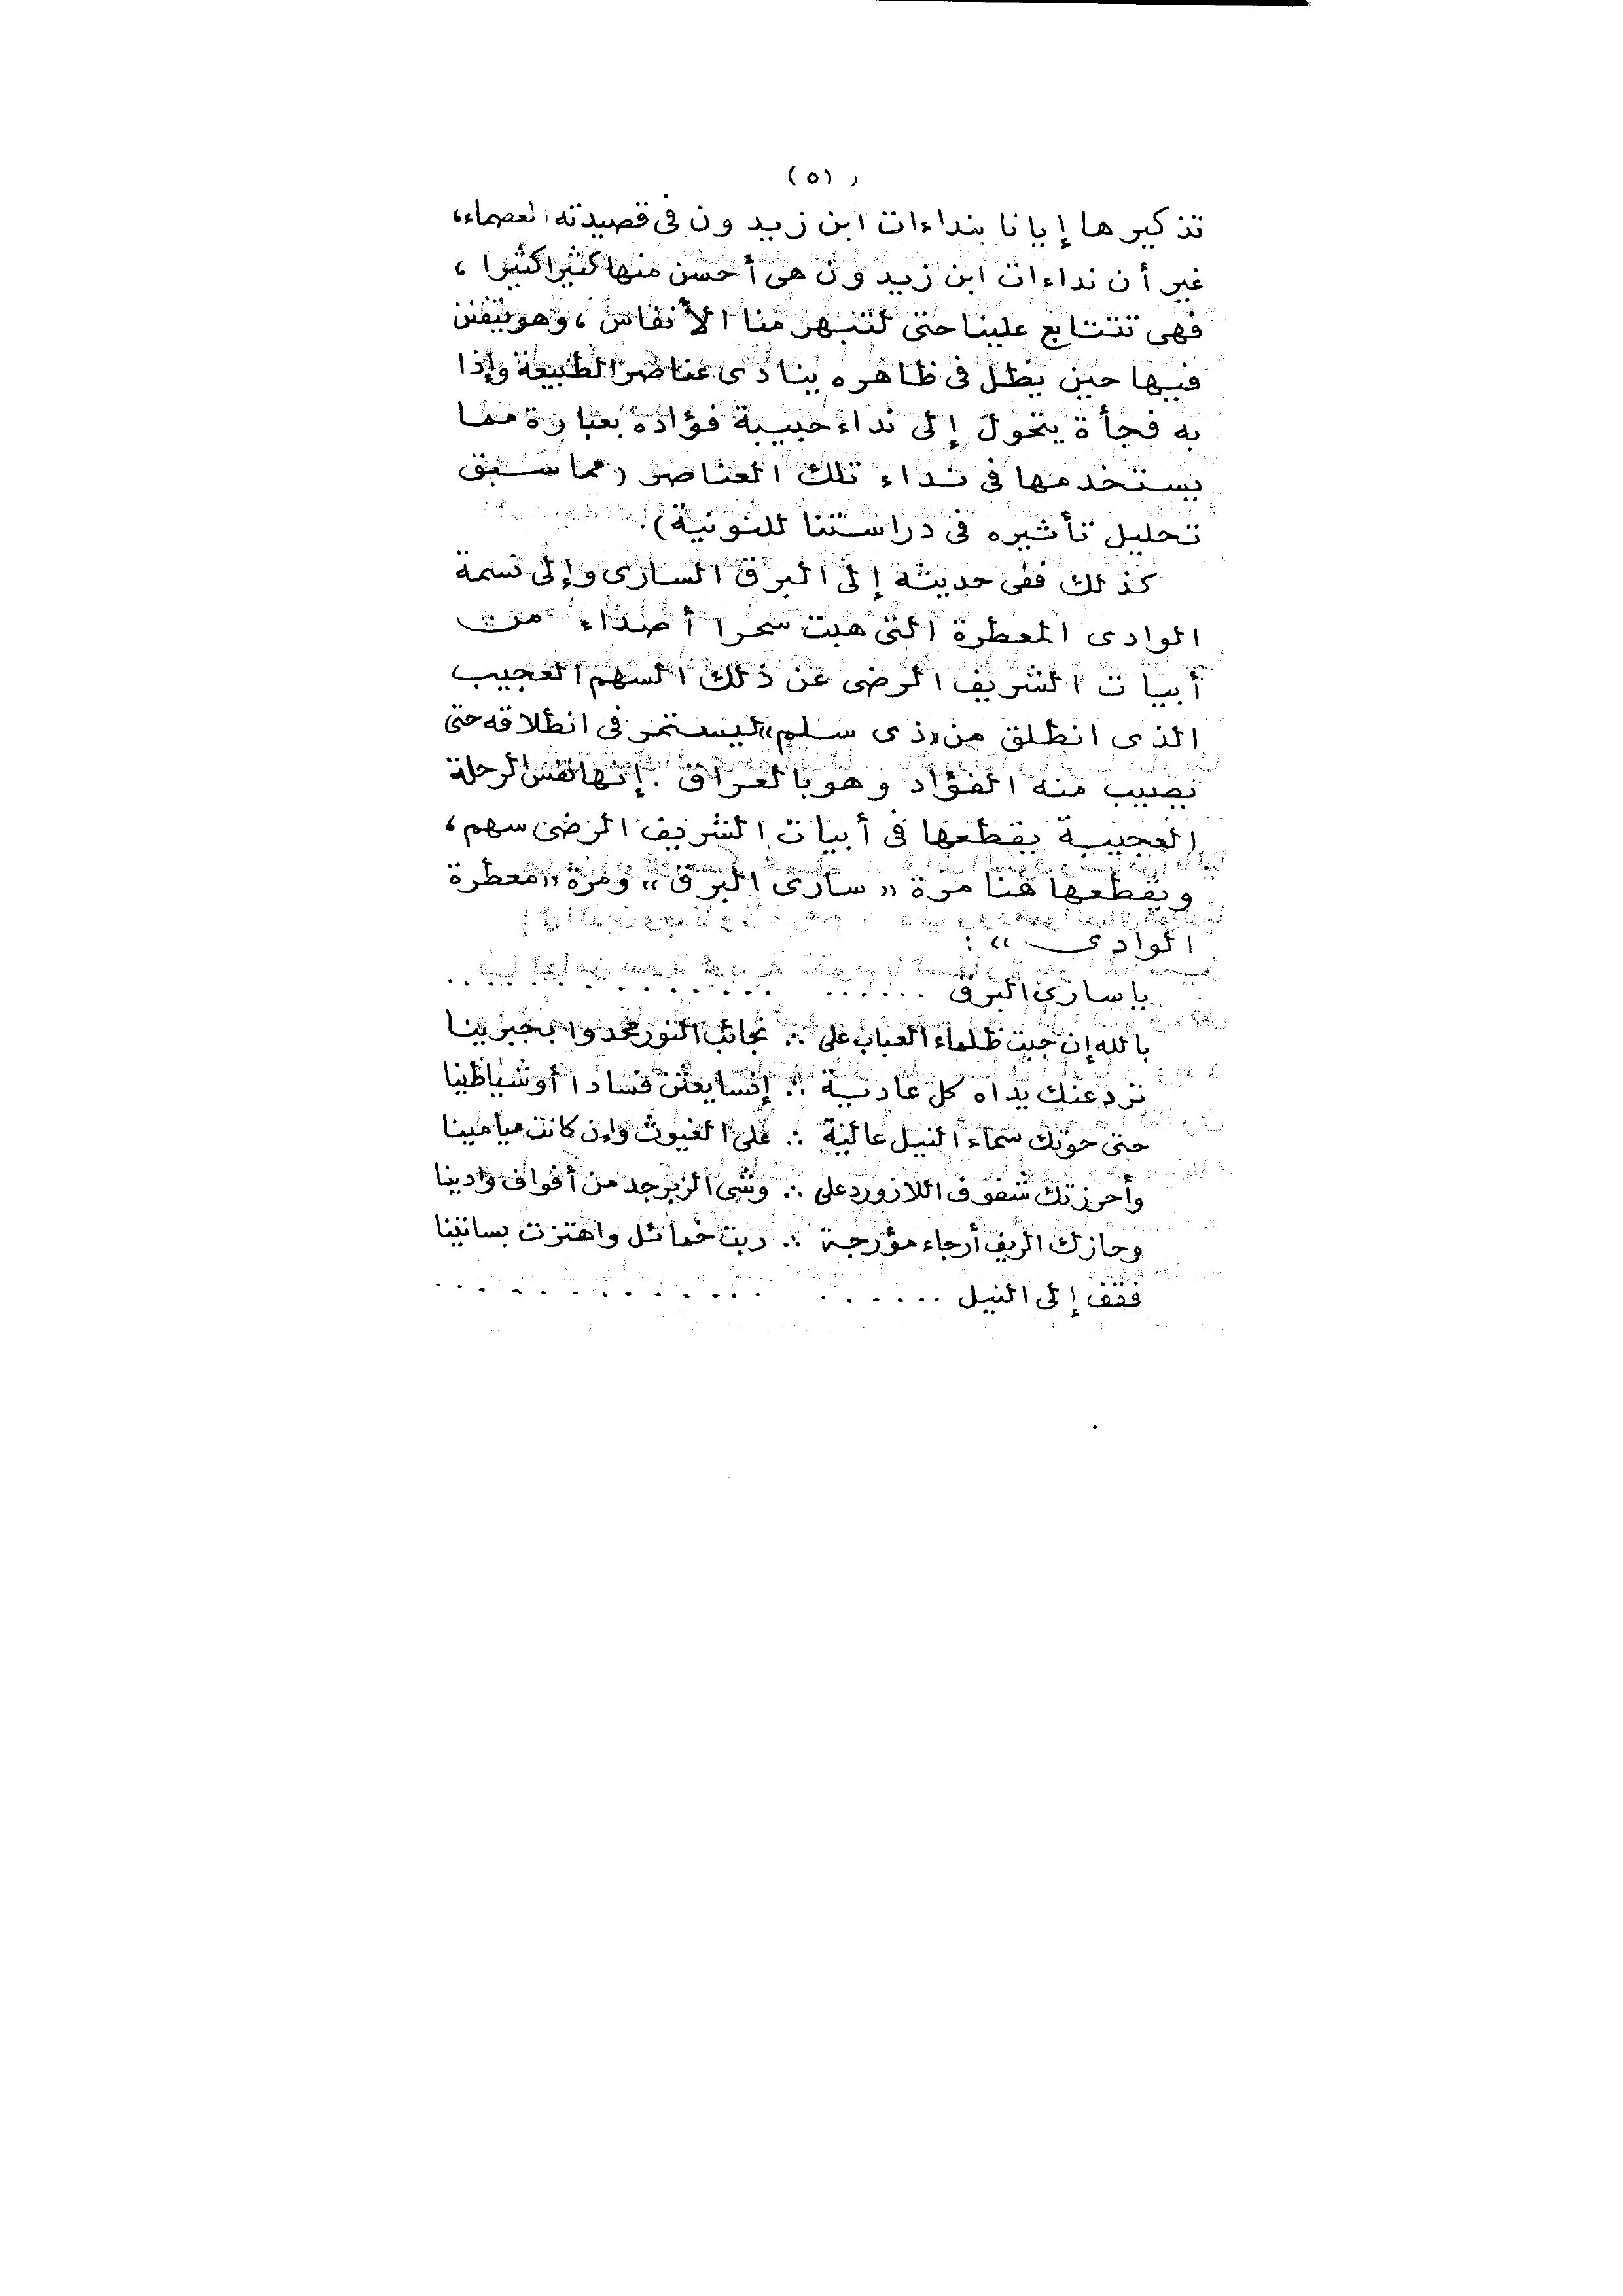 (٥١)
تذكيرها إيانا بنداءات ابن زيدون فى قصيدته العصماء،
غير أن نداءات ابن زيدون هى أحسن منها كثيرا كثيرا ،
فهى تتتابع علينا حتى لتنبهر منا الأنفاس ، وهو يتفنن
فيها حين يظل فى ظاهره ينادى عناصر الطبيعة وإذا
به فجأة يتحول إلى نداء حبيبة فؤاده بعبارة مما
يستخدمها فى نداء تلك العناصر (مما سبق
تحليل تأثيره فى دراستنا للنونية).
كذلك ففى حديثه إلى البرق السارى وإلى نسمة
الوادى المعطرة التى هبت سحرا أصداء من
أبيات الشريف الرضى عن ذلك السهم العجيب
الذى انطلق من «ذى سلم» ليستمر فى انطلاقه حتى
يصيب منه الفؤاد وهو بالعراق . إنها نفس الرحلة
العجيبة يقطعها فى أبيات الشريف الرضى سهم ،
ويقطعها هنا مرة « سارى البرق » ومرة « معطرة
الوادى » :
يا سارى البرق ...... .............
بالله إن جبت ظلماء العباب على ∴ نجائب النور محدوا بجبرينا
ترد عنك يداه كل عادية ∴ إنسا يعثن فسادا أو شياطينا
حتى حوتك سماء النيل عالية ∴ على الغيوث وإن كانت ميامينا
وأحرزتك شفوف اللازورد على ∴ وشى الزبرجد من أفواف وادينا
وحازك الريف أرجاء مؤرجة ∴ ربت خمائل واهتزت بساتينا
فقف إلى النيل ...... .............